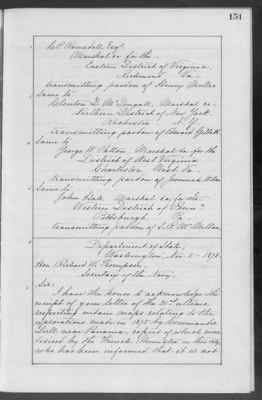 151
C. P. Ramsdell, Esqr.
Marshal &c for the
Eastern District of Virginia
Richmond Va-
transmitting pardon of Henry
Same to
Clinton D. McDougall, Marshal &c
Northern District of New York
N. Y.
transmitting pardon of Edward
Same to
George W. Patton, Marshal &c for the
District of West Virginia
Charleston West Va-
transmitting pardon of Jeremiah
Same to
John Hall, Marshal &c, for the
Western District of Penna
Pittsburgh Pa-
transmitting pardon of S. R. McMillan
Department of State,
Washington, Nov. 5- 1878.
Hon. Richard W. Thompson,
Secretary of the Navy.
Sir:
I have the honor to acknowledge the
receipt of your letter of the 31st ultimo,
respecting certain maps relating to the
operations made in 1875 by Commander
Lull near Panama, copies of which were
desired by the French Minister in this city
who has been informed that it is not